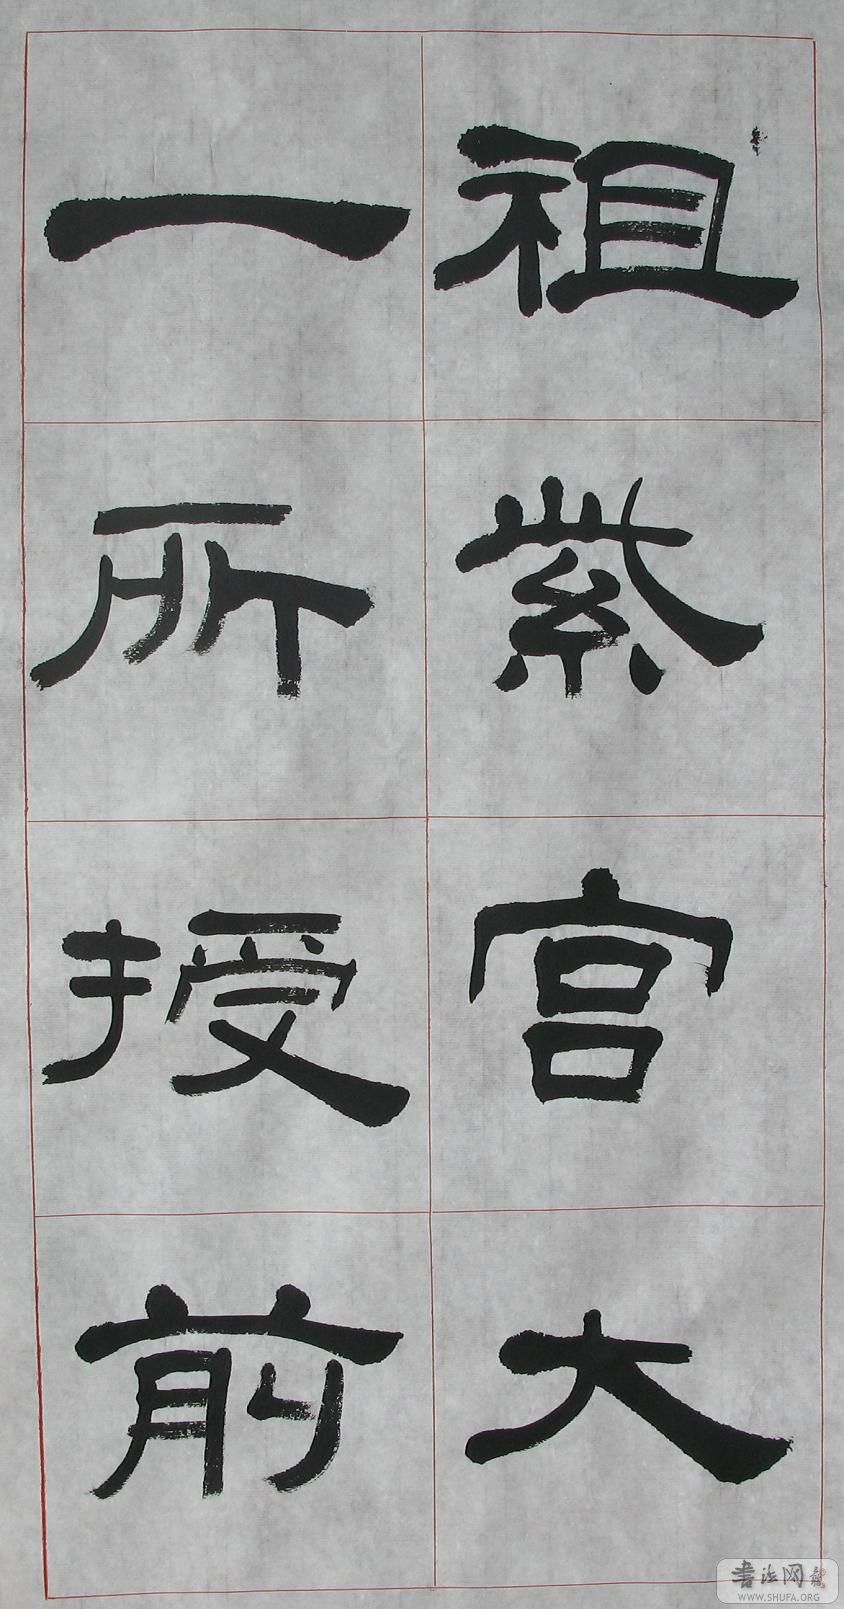 祖紫宫大
一所授前
書法网
WWW.SHUFA.ORG